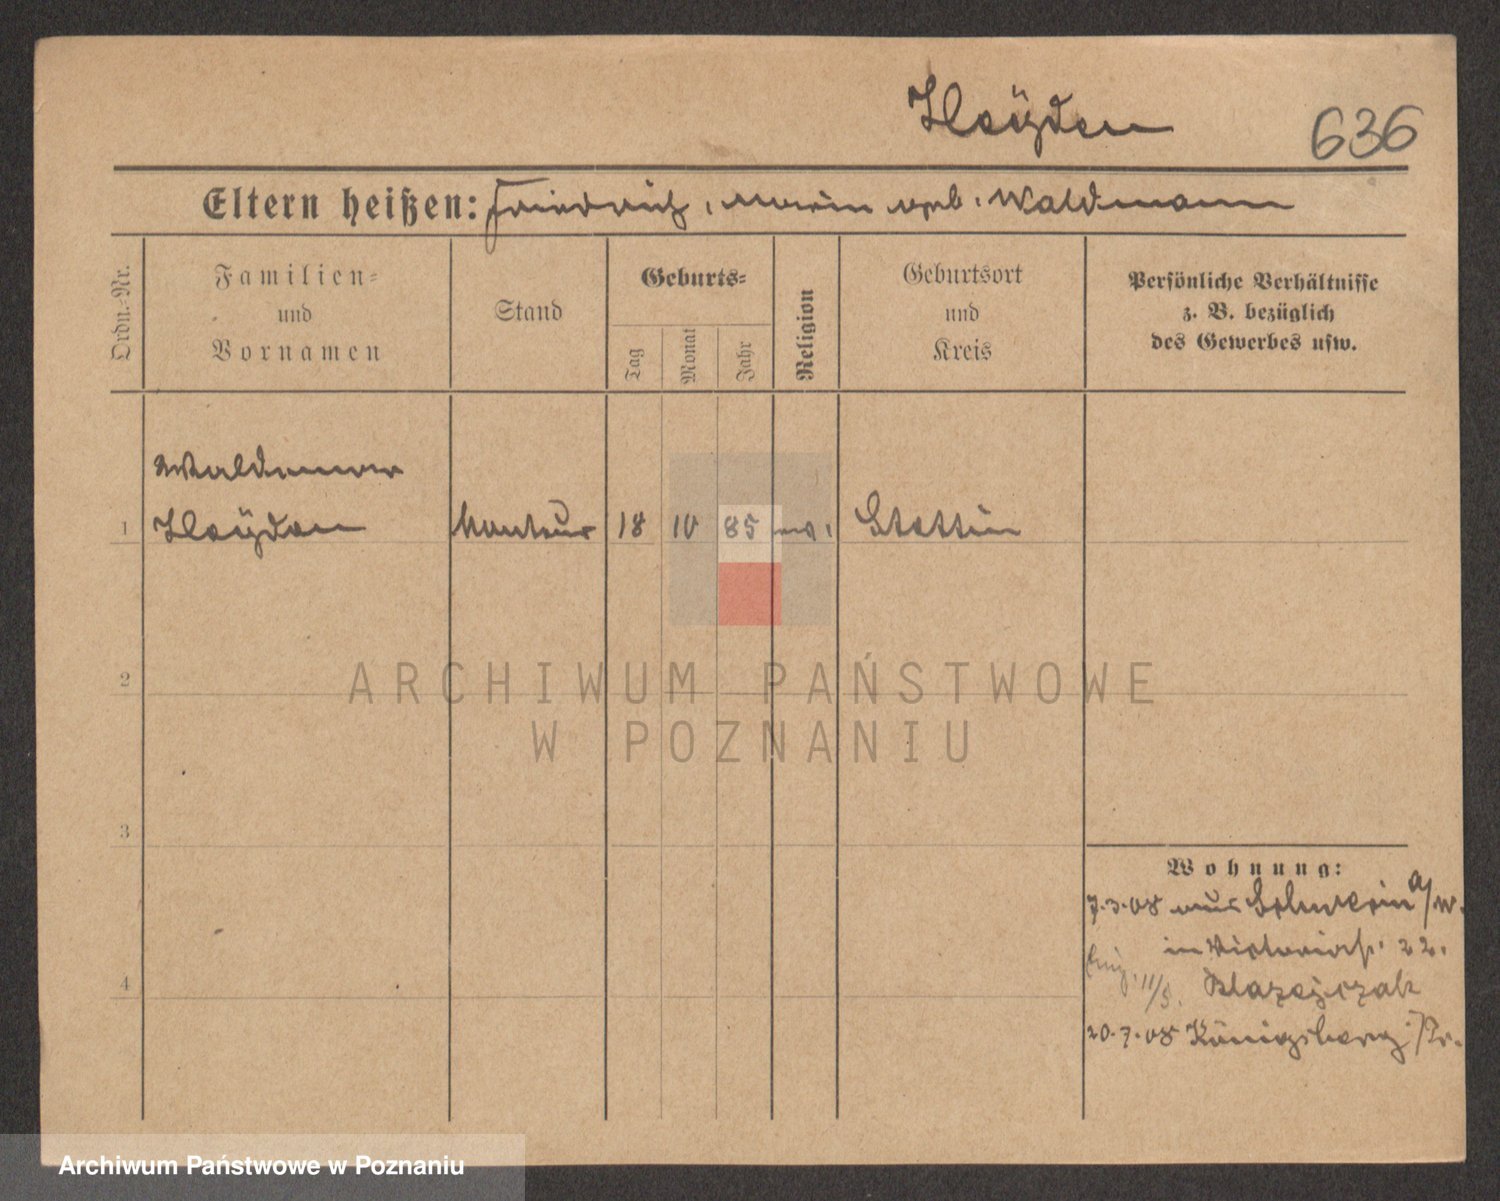 Heyden
636
Eltern heißen: Friedrich, Marie geb. Waldmann
Ordn.-Nr.
Familien-
und
Vornamen
Stand
Geburts-
Tag
Monat
Jahr
Religion
Geburtsort
und
Kreis
Persönliche Verhältnisse
z. B. bezüglich
des Gewerbes usw.
Waldemar
1 Heyden Monteur 18 10 85 ev. Stettin
2
ARCHIWUM PAŃSTWOWE
W POZNANIU
3
Wohnung:
7.3.08 aus Schwerin a/W.
in Victoriastr. 22.
11/3. Blazejczak
20.7.08 Königsberg i/Pr.
4
Archiwum Państwowe w Poznaniu